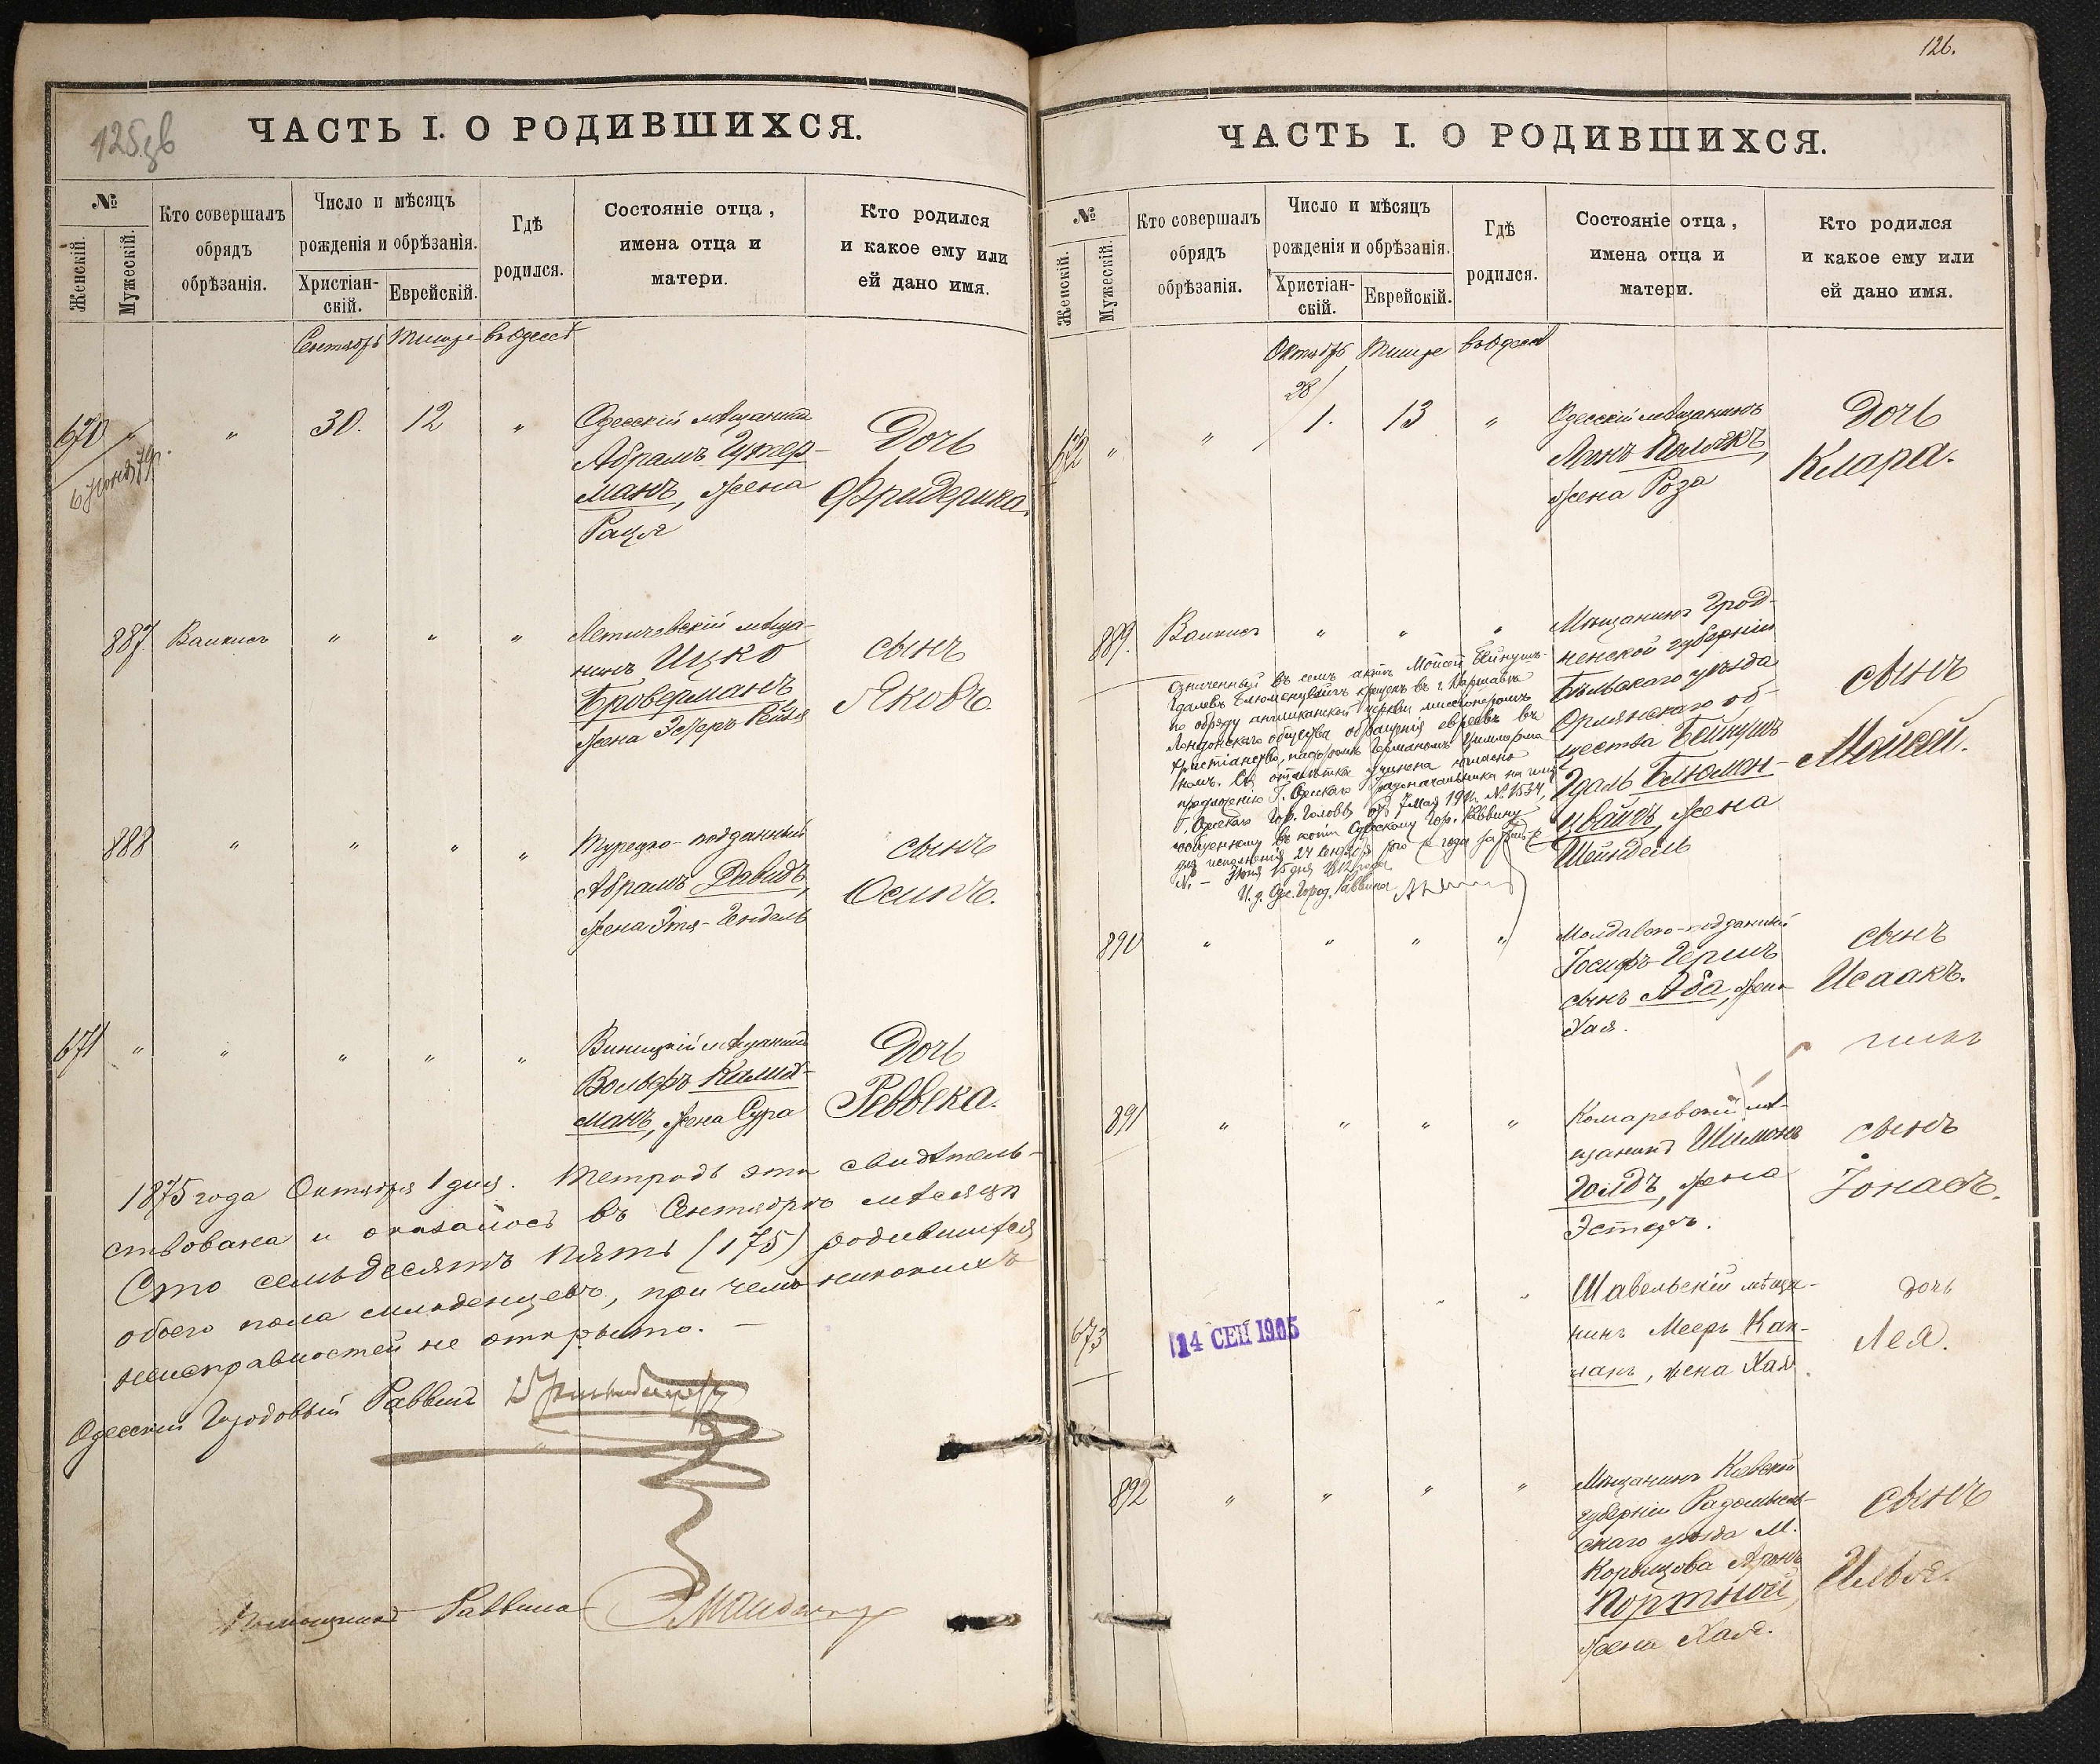 125 зв
ЧАСТЬ I. О РОДИВШИХСЯ.
№
Женскій.
Мужескій.
Кто совершалъ
обрядъ
обрѣзанія.
Число и мѣсяцъ
рожденія и обрѣзанія.
Христіан-
скій.
Еврейскій.
Гдѣ
родился.
Состояніе отца,
имена отца и
матери.
Кто родился
и какое ему или
ей дано имя.
Сентябрь Тишре въ Одессѣ
670 " " 30. 12 "
Одесскій мѣщанинъ
Абрамъ Гутер-
манъ, жена
Рация
Дочь
Фридерика.
887. Валкисъ " " "
Летичевскій мѣща-
нинъ Ицко
Броверманъ
жена Эстеръ Рейзя
сынъ
Яковъ.
888 " " " "
Турецко-подданный
Абрамъ Давидъ,
жена Этя-Гендель
сынъ
Осипъ.
671 " " " " "
Виницкій мѣщанинъ
Вольфъ Калих-
манъ, жена Сура
Дочь
Реввека.
1875 года Октября 1 дня. Тетрадь эта свидѣтель-
ствована и оказалось въ Сентябрѣ мѣсяцѣ
Сто семьдесятъ пять (175) родившихся
обоего пола младенцевъ, при чемъ никакихъ
неисправностей не открыто. —
Одесскій Городовый Раввинъ
Помощникъ Раввина
126.
ЧАСТЬ I. О РОДИВШИХСЯ.
№
Женскій.
Мужескій.
Кто совершалъ
обрядъ
обрѣзанія.
Число и мѣсяцъ
рожденія и обрѣзанія.
Христіан-
скій.
Еврейскій.
Гдѣ
родился.
Состояніе отца,
имена отца и
матери.
Кто родился
и какое ему или
ей дано имя.
Октябрь Тишре въ Одессѣ
28/
672 " " 1. 13 "
Одесскій мѣщанинъ
жена Роза
Дочь
Клара.
889. Валкисъ " " "
Мѣщанинъ Грод-
ненской губерніи
Бѣльскаго уѣзда
Орлянскаго об-
щества Бейнушъ
Гдаль Блюмен-
цвайгъ, жена
Шейндель
сынъ
Мойсей.
Означенный въ семъ актѣ Мойсей Бейнушъ-
Гдалевъ Блюменцвайгъ крещенъ въ г. Варшавѣ
по обряду англиканской церкви миссіонеромъ
Лондонскаго общества обращенія евреевъ въ
христіанство, пасторомъ Германомъ Циммерма
номъ. Ся отмѣтка учинена согласно
предложенію Г. Одесскаго Градоначальника на имя
Г. Одесскаго Гор. Головы отъ 7 мая 191 г. № 1534,
сообщенному въ копіи Одесскому Гор. Раввину
для исполненія
И. д. Од. Город. Раввина
890 " " " "
Молдавско-подданный
Іосифъ-Гершъ
сынъ Аба, жена
Хая.
сынъ
Исаакъ.
891 " " " "
Комаровскій мѣ-
щанинъ Шимонъ
Голдъ, жена
Эстеръ.
сынъ
Іонасъ.
673
14 СЕН 1905
Шавельскій мѣща-
нинъ Мееръ Кап-
ланъ, жена Хая.
дочь
Лея.
892 " " " "
Мѣщанинъ Кіевской
губерніи Радомысль-
скаго уѣзда М.
Аронъ
Портной,
жена Хая.
сынъ
Илья.